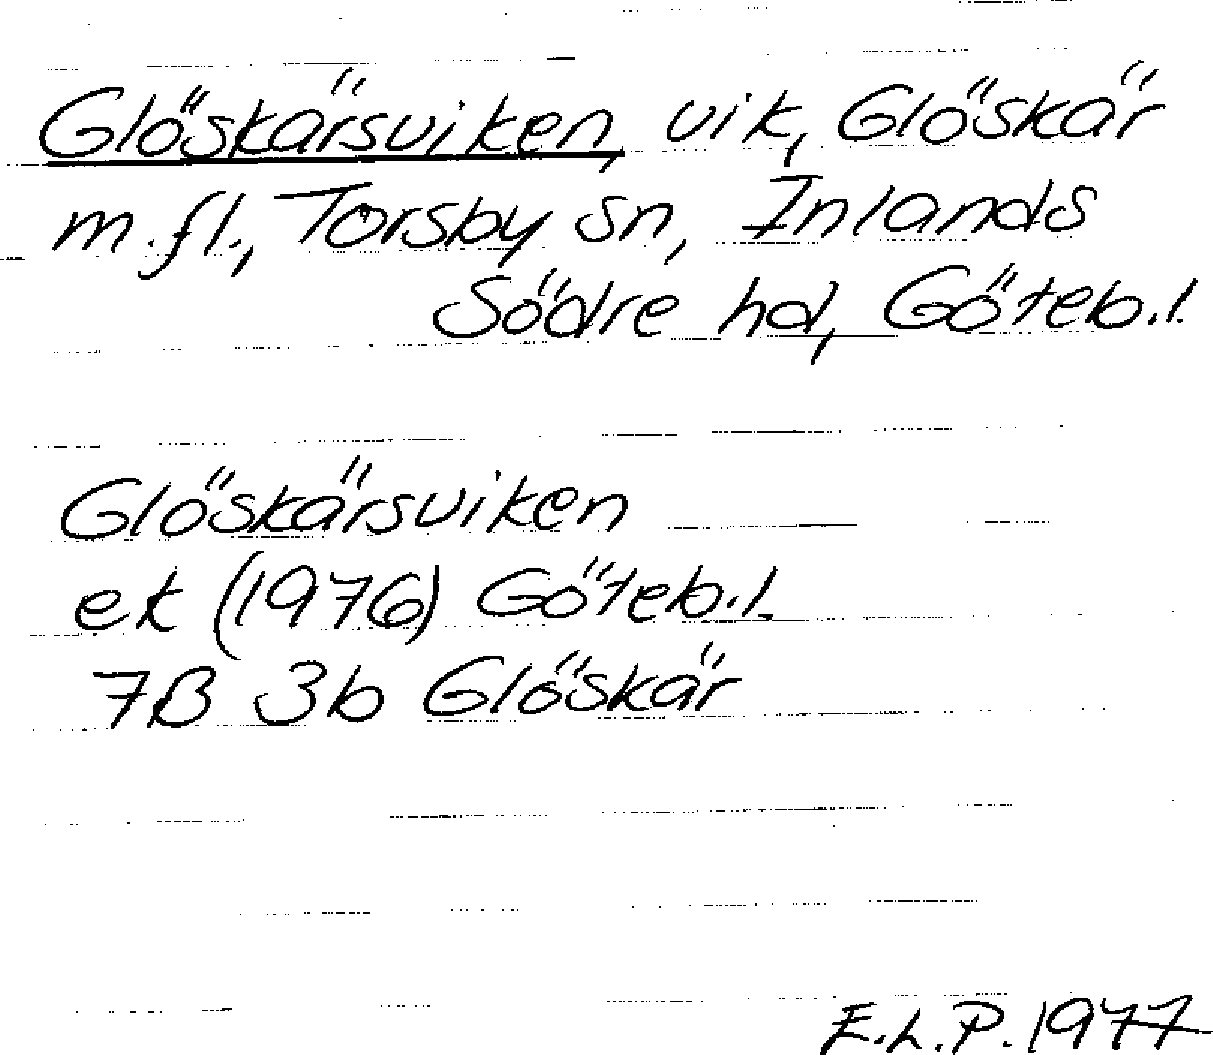 Glöskärsviken, vik, Glöskär
m.fl., Torsby sn, Inlands
Södre hd, Göteb.l.
Glöskärsviken
ek (1976) Göteb.l.
7B 3b Glöskär
E.L.P. 1977